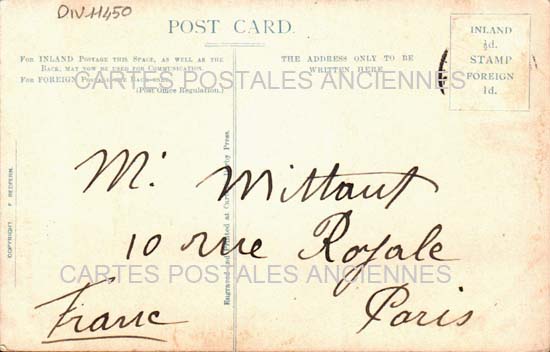 DIV.11450
POST CARD.
FOR INLAND POSTAGE THIS SPACE, AS WELL AS THE
BACK, MAY NOW BE USED FOR COMMUNICATION.
FOR FOREIGN POSTAGE THE BACK ONLY.
(Post Office Regulation.)
THE ADDRESS ONLY TO BE
WRITTEN HERE
INLAND
½d.
STAMP
FOREIGN
1d.
CARTES POSTALES ANCIENNES
COPYRIGHT. F. REDFERN.
Engraved and Printed at Press.
Mr. Mittaut
10 rue Royale
CARTES POSTALES ANCIENNES
Franc Paris